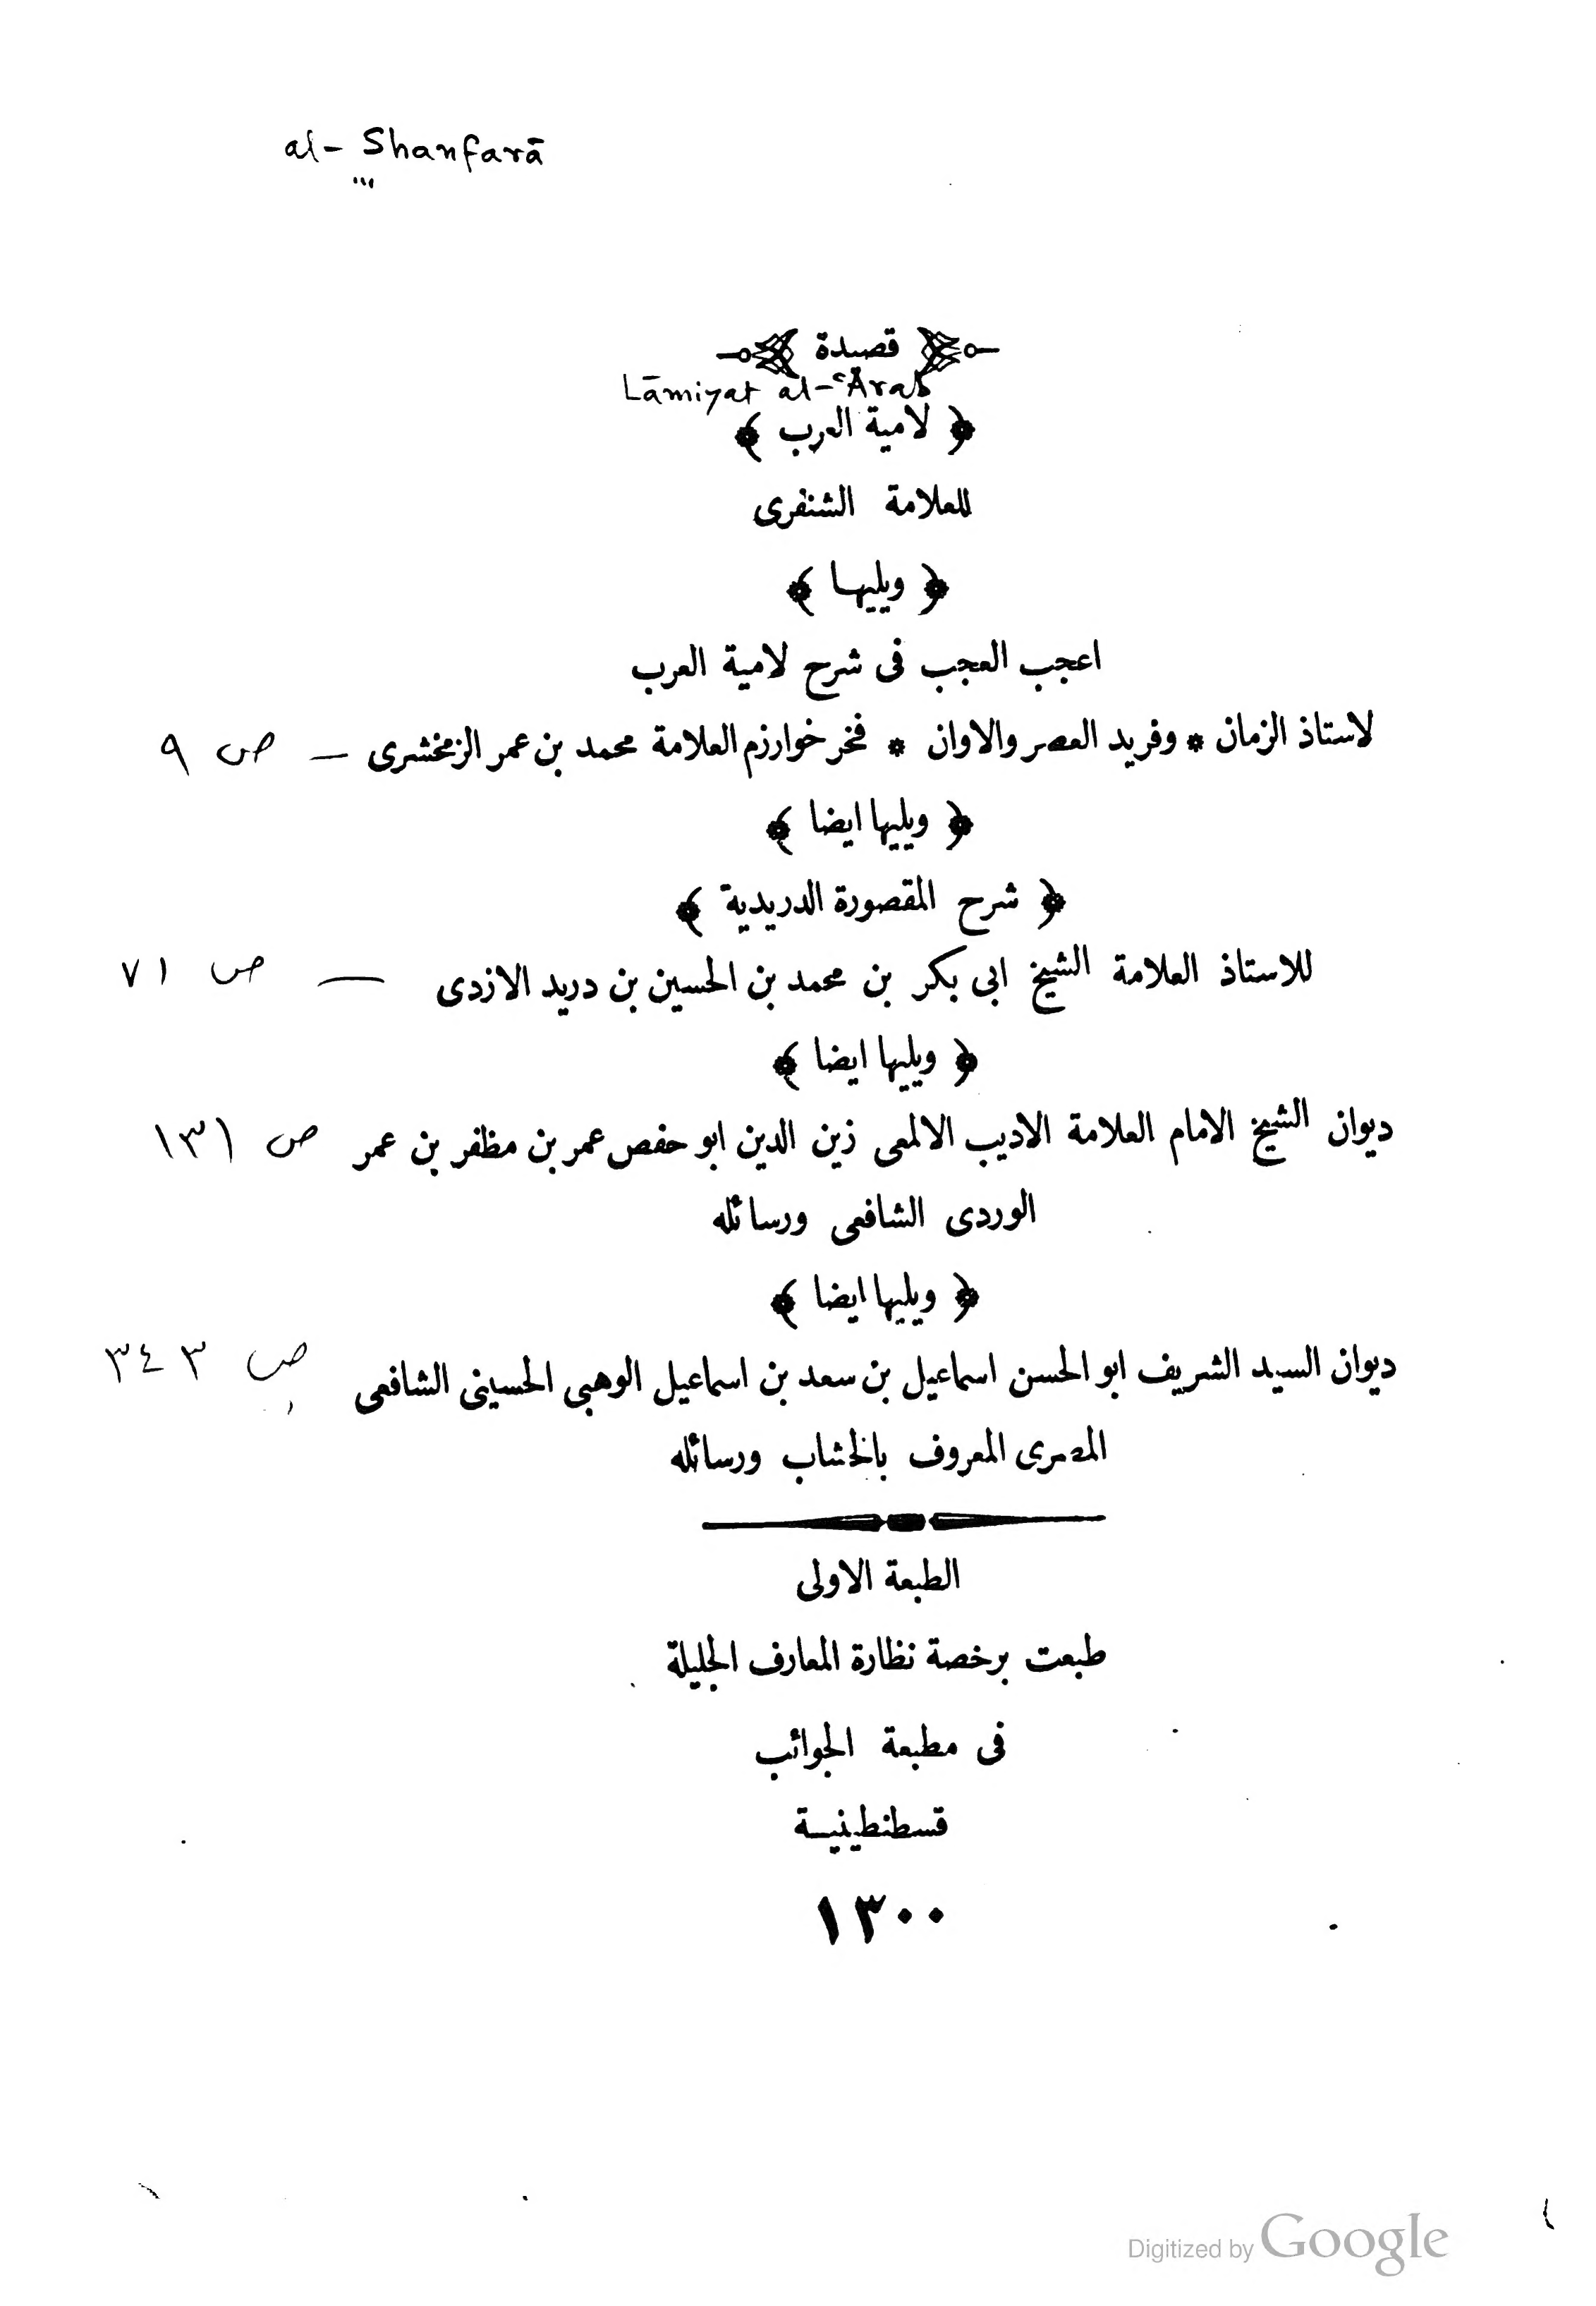 al-Shanfarā
قصيدة
Lāmiyat al-ʿArab
﴿ لامية العرب ﴾
للعلامة الشنفرى
﴿ ويليها ﴾
اعجب العجب فى شرح لامية العرب
لاستاذ الزمان * وفريد العصر والاوان * فخر خوارزم العلامة محمد بن عمر الزمخشرى — ص ٩
﴿ ويليها ايضا ﴾
﴿ شرح المقصورة الدريدية ﴾
للاستاذ العلامة الشيخ ابى بكر بن محمد بن الحسين بن دريد الازدى — ص ٧١
﴿ ويليها ايضا ﴾
ديوان الشيخ الامام العلامة الاديب الالمعى زين الدين ابو حفص عمر بن مظفر بن عمر ص ١٣١
الوردى الشافعى ورسائله
﴿ ويليها ايضا ﴾
ديوان السيد الشريف ابو الحسن اسماعيل بن سعد بن اسماعيل الوهبى الحسينى الشافعى ص ٣٤٣
المصرى المعروف بالخشاب ورسائله
الطبعة الاولى
طبعت برخصة نظارة المعارف الجليلة
فى مطبعة الجوائب
قسطنطينية
١٣٠٠
Digitized by Google